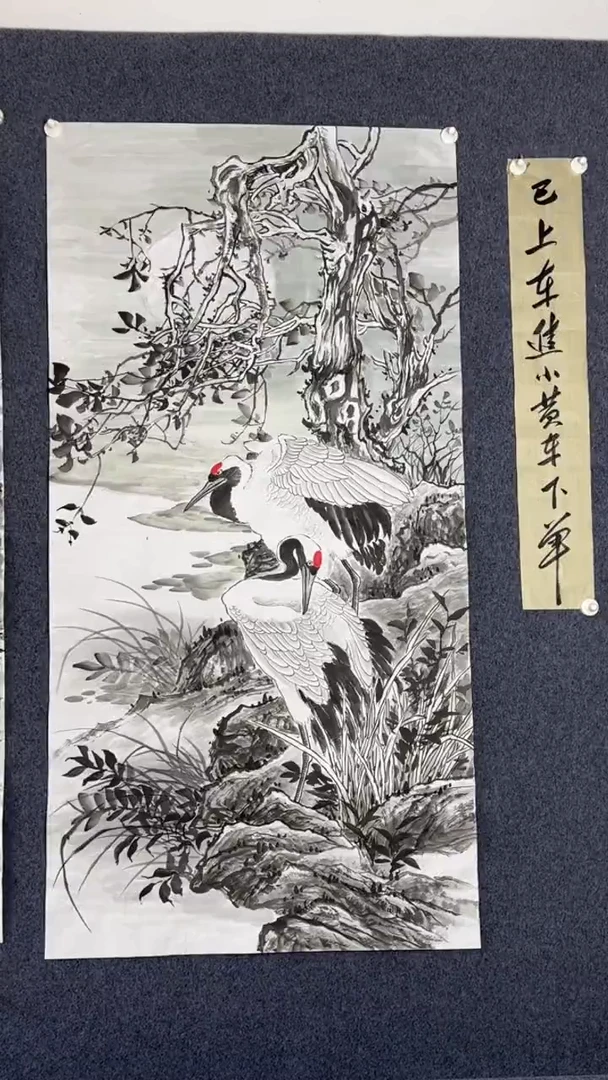 已上车进小黄车下单